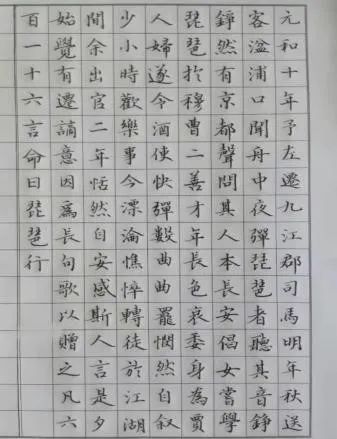 元和十年予左遷九江郡司馬明年秋送
客湓浦口聞舟中夜彈琵琶者聽其音錚
錚然有京都聲問其人本長安倡女嘗學
琵琶於穆曹二善才年長色衰委身為賈
人婦遂令酒使快彈數曲曲罷憫然自叙
少小時歡樂事今漂淪憔悴轉徒於江湖
間余出官二年恬然自安感斯人言是夕
始覺有遷謫意因爲長句歌以贈之凡六
百一十六言命曰琵琶行